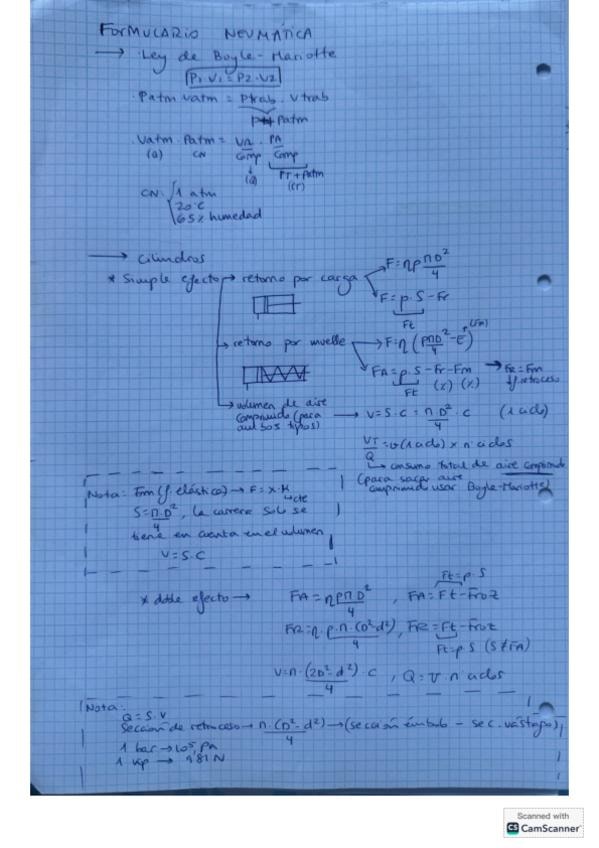 FORMULARIO NEUMÁTICA
→ Ley de Boyle-Mariotte
P1·V1 = P2·V2
· Patm·Vatm = Ptrab·Vtrab
Patm
· Vatm·Patm = VA · PA
(Q) CN comp comp
(Q) Pr + Patm
(CT)
CN: 1 atm
20°C
65% humedad
→ Cilindros
* Simple efecto → retorno por carga → F = ηpπD²/4
F = p·S - Fr
Ft
→ retorno por muelle → F = η(pπD²/4 - F) (Fm)
FA = p·S - Fr - Fm → FR = Fm
Ft (%) (%) f. retroceso
→ volumen de aire
comprimido (para
ambos tipos) → V = S·C = πD²/4 · C (1 ciclo)
VT/Q = v(1 ciclo) x nº ciclos
↳ consumo total de aire comprimido
(para sacar aire
comprimido usar Boyle-Mariotte)
Nota: Fm (f. elástica) → F = x·K
↳ cte
S = πD²/4, la carrera solo se
tiene en cuenta en el volumen
V = S·C
Ft = p·S
* doble efecto → FA = ηpπD²/4, FA = Ft - Froz
FR = η·p·π·(D²-d²)/4, FR = Ft - Froz
Ft = p·S (S≠FA)
V = π·(2D²-d²)/4 · C, Q = V·nº ciclos
Nota:
Q = S·V
Sección de retroceso → π·(D²-d²)/4 → (sección émbolo - sec. vástago)
1 bar → 10⁵ Pa
1 Kp → 9'81 N
Scanned with
CS CamScanner